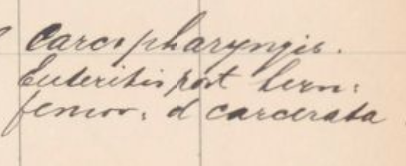 Carc. pharyngis.
Enteritis post hern:
femor: d carcerata